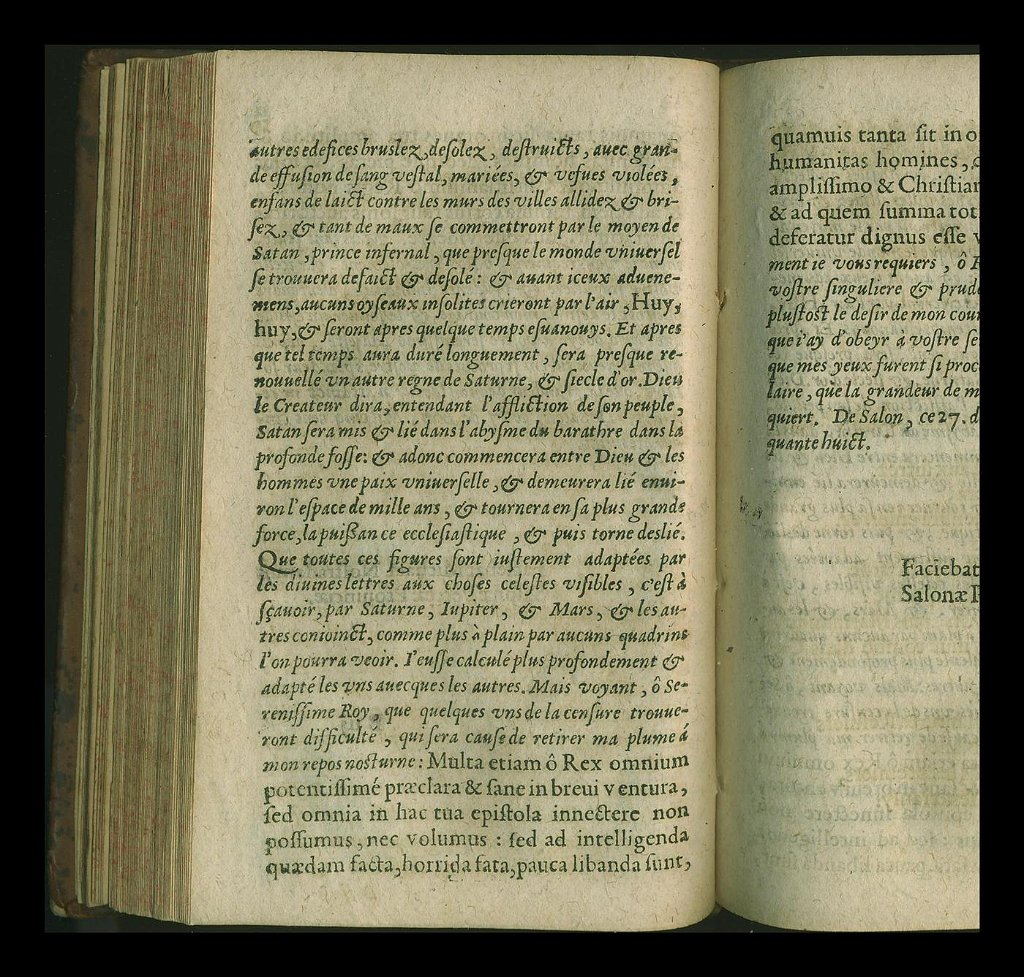 autres edefices bruslez, desolez, destruicts, auec gran-
de effusion de sang vestal, mariées, & vefues violées,
enfans de laict contre les murs des villes allidez & bri-
sez, & tant de maux se commettront par le moyen de
Satan, prince infernal, que presque le monde vniuersel
se trouuera defaict & desolé: & auant iceux aduene-
mens, aucuns oyseaux insolites crieront par l'air, Huy,
huy, & seront apres quelque temps esuanouys. Et apres
que tel temps aura duré longuement, sera presque re-
nouuellé vn autre regne de Saturne, & siecle d'or. Dieu
le Createur dira, entendant l'affliction de son peuple,
Satan sera mis & lié dans l'abysme du barathre dans la
profonde fosse: & adonc commencera entre Dieu & les
hommes vne paix vniuerselle, & demeurera lié enui-
ron l'espace de mille ans, & tournera en sa plus grande
force, la puissance ecclesiastique, & puis torne deslié.
Que toutes ces figures sont iustement adaptées par
les diuines lettres aux choses celestes visibles, c'est à
sçauoir, par Saturne, Iupiter, & Mars, & les au-
tres conioinct, comme plus à plain par aucuns quadrins
l'on pourra veoir. I'eusse calculé plus profondement &
adapté les vns auecques les autres. Mais voyant, ô Se-
renissime Roy, que quelques vns de la censure trouue-
ront difficulté, qui sera cause de retirer ma plume à
mon repos nocturne: Multa etiam ô Rex omnium
potentissimé præclara & sane in breui ventura,
sed omnia in hac tua epistola innectere non
possumus, nec volumus: sed ad intelligenda
quædam facta, horrida fata, pauca libanda sunt,
quamuis tanta sit in o
humanitas homines,
amplissimo & Christian
& ad quem summa tot
deferatur dignus esse v
ment ie vous requiers, ô
vostre singuliere & prud
plustost le desir de mon cou
que i'ay d'obeyr à vostre se
que mes yeux furent si proc
laire, que la grandeur de m
quiert. De Salon, ce 27. d
quante huict.
Faciebat
Salonæ P